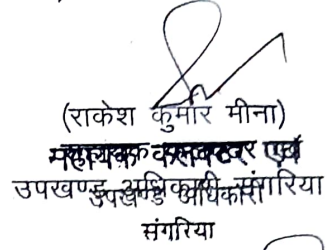 (राकेश कुमार मीना)
सहायक कलक्टर एवं
उपखण्ड अधिकारी संगरिया
उपखण्ड अधिकारी
संगरिया